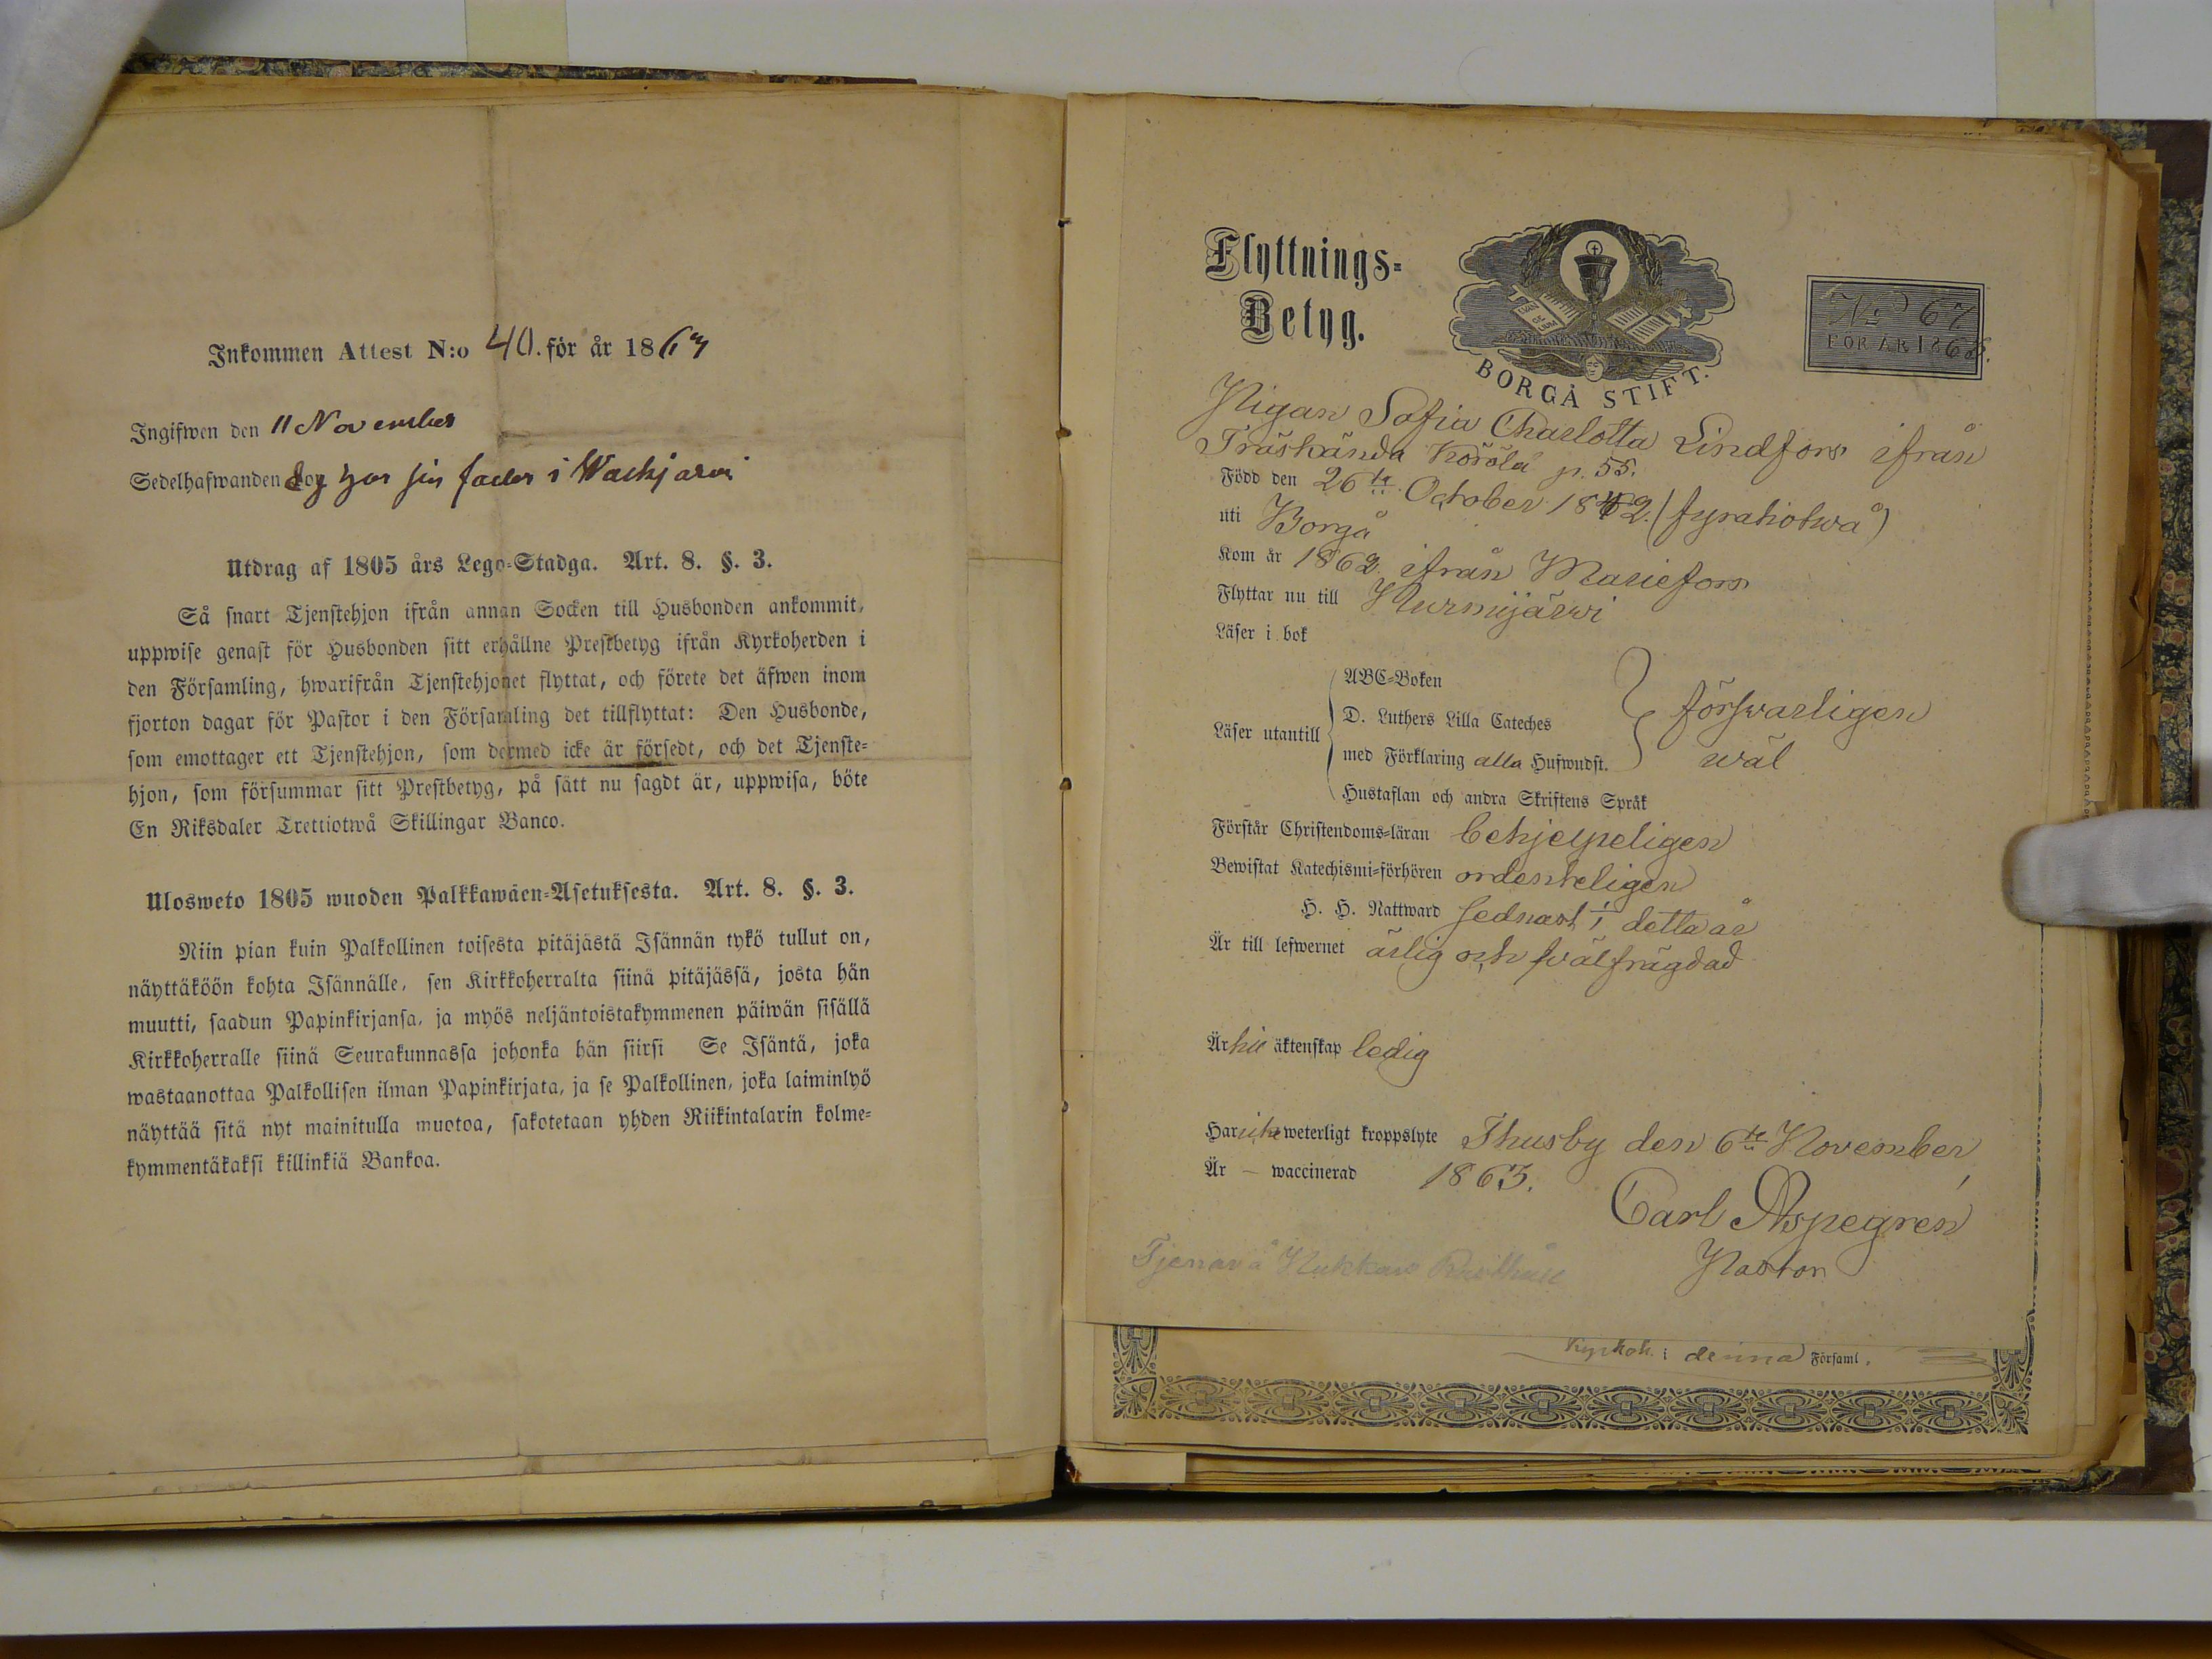 Inkommen Attest N:o 40. för år 1863
Ingifwen den 11 November
Sedelhafwanden hos sin fader i Wachjarvi
Utdrag af 1805 års Lego-Stadga. Art. 8. §. 3.
Så snart Tjenstehjon ifrån annan Socken till Husbonden ankommit,
uppwise genast för Husbonden sitt erhållne Prestbetyg ifrån Kyrkoherden i
den Församling, hwarifrån Tjenstehjonet flyttat, och förete det äfwen inom
fjorton dagar för Pastor i den Församling det tillflyttat: Den Husbonde,
som emottager ett Tjenstehjon, som dermed icke är försedt, och det Tjenste-
hjon, som försummar sitt Prestbetyg, på sätt nu sagdt är, uppwisa, böte
En Riksdaler Trettiotwå Skillingar Banco.
Ulosweto 1805 wuoden Palkkawäen-Asetuksesta. Art. 8. §. 3.
Niin pian kuin Palkollinen toisesta pitäjästä Isännän tykö tullut on,
näyttäköön kohta Isännälle, sen Kirkkoherralta siinä pitäjässä, josta hän
muutti, saadun Papinkirjansa, ja myös neljäntoistakymmenen päiwän sisällä
Kirkkoherralle siinä Seurakunnassa johonka hän siirsi Se Isäntä, joka
wastaanottaa Palkollisen ilman Papinkirjata, ja se Palkollinen, joka laiminlyö
näyttää sitä nyt mainitulla muotoa, sakotetaan yhden Riikintalarin kolme-
kymmentäkaksi killinkiä Bankoa.
Flyttnings-
Betyg.
EVAN
GE
LIUM
BORGÅ STIFT.
No 67
FÖR ÅR 1863.
Pigan Sofia Charlotta Lindfors ifrån
Träskända Körölä p. 55.
Född den 26te October 1842. (fyratiotwå)
uti Borgå
Kom år 1862 ifrån Mariefors
Flyttar nu till Nurmijärwi
Läser i bok
Läser utantill
ABC-Boken
D. Luthers Lilla Cateches
med Förklaring alla Hufwudst.
Hustaflan och andra Skriftens Språk
försvarligen
wäl
Förstår Christendoms-läran behjelpeligen
Bewistat Katechismi-förhören ordenteligen
H. H. Nattward sednast i detta år
Är till lefwernet ärlig och wälfrägdad
Är till äktenskap ledig
Har icke weterligt kroppslyte Thusby den 6te November
Är — waccinerad 1863.
Carl Aspegren
Pastor
Tjenar å Nukkars
Kyrkoh. i denna Församl.